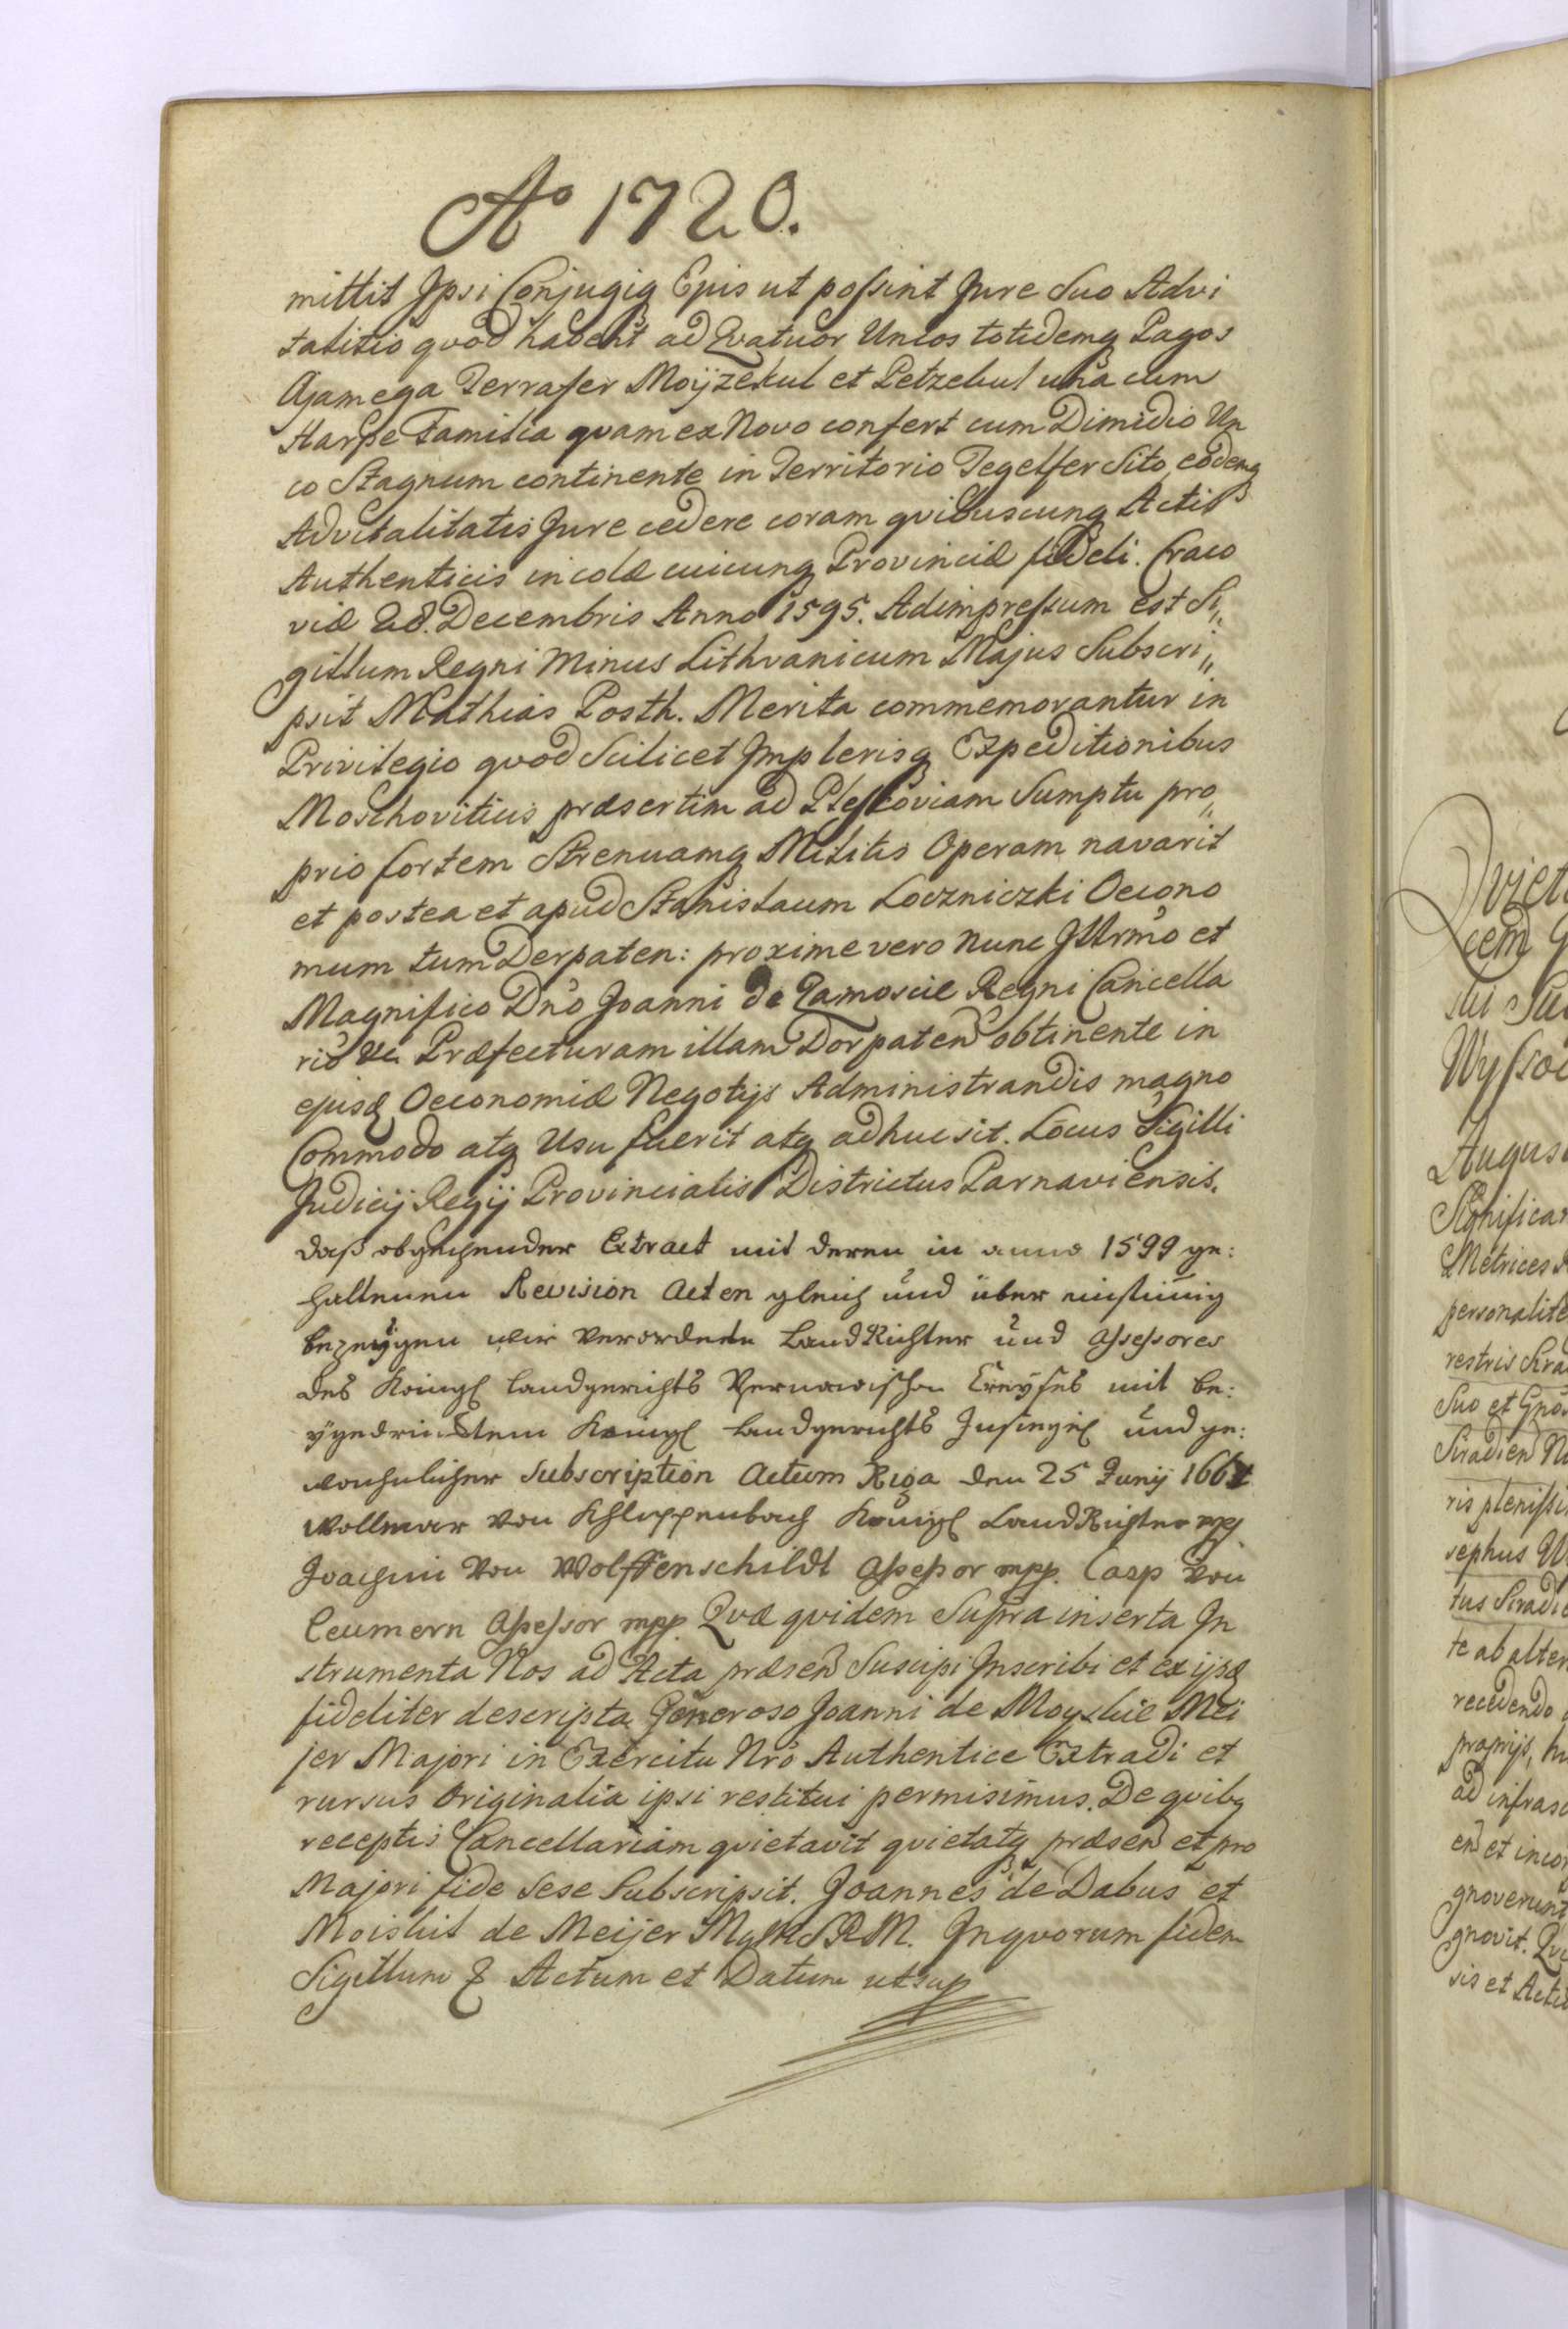 Aº 1720.
mittit Jpsi Conjugiq Ejus ut poſsint Jure Suo Advi
talitio qvod habent ad Qvatuor Uncos totidemq Pagos
Ajamega Terrafer Moÿzekul et Petzekul una cum
Harpe Familia qvam ex Novo confert cum Dimidio Un
co Stagnum continente in Territorio Tegelfer Sito, eodemq
Advitalitatis Jure cedere coram qvibuscunq Actis
Authenticis incolæ cuicunq Provinciæ fideli. Craco
viæ 28. Decembris Anno 1595. Adimpreſsum est Si„
gillum Regni Minus Lithvanicum Majus Subscri„
psit Mathias Posth. Merita commemorantur in
Privilegio qvod Scilicet Jmplerisq Expeditionibus
Moschoviticis præsertim ad Pleſkoviam Sumptu pro„
prio fortem Strenuamq Militis Operam navarit
et postea et apud Stanislaum Loczniczki Oecono
mum tum Derpaten: proxime vero nunc Jllrmo et
Magnifico Dno Joanni de Zamoscie Regni Cancella
rio Præfecturam illam Dorpaten obtinente in
ejusq Oeconomiæ Negotijs Administrandis magno
Commodo atq Usu fuerit atq adhuc sit. Locus Sigilli
Judicij Regij Provincialis Districtus Parnaviensis.
daß obgehender Extract mit deren in anno 1599 ge:
haltenen Revision Acten gleich und über einstimig
bezeügen wir Verordnete LandRichter und Aſseſsores
des Königl Landgerichts Pernawischen Creÿses mit be:
ÿgedrucktem Königl Landgerichts Insiegel und ge:
wohnlicher Subscription Actum Riga den 25 Junij 166
Wollmar von Schlippenbach Königl LandRichter mpp
Joachim von Wolffenschildt Aſseſsor mpp. Casp von
Ceumern Aſseſsor mpp. Qvæ qvidem Supra inserta Jn
strumenta Nos ad Acta præsen Suscipi Jnscribi et ex ijsq
fideliter descripta Generoso Joanni de Moyskie Mei
jer Majori in Exercitu Nro Authentice Extradi et
rursus Originalia ipsi restitui permisimus. De qvibq
receptis Cancellariam qvietavit qvietatq præsen et pro
Majori fide Sese Subscripsit. Joannes de Dabus et
Moiskit de Meijer JRM. Jn qvorum fidem
Sigillum & Actum et Datum ut sup
Augus
Metrices
restris
Suo et
ris pleniſsi
sephus
te ab alter
recedendo
proprijs,
ad infrasc
gnoverunt
gnovit.
sis et Actis